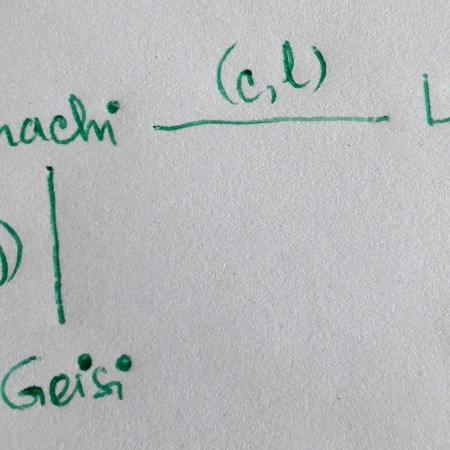 (c, l)
nachi L
)
Geisi